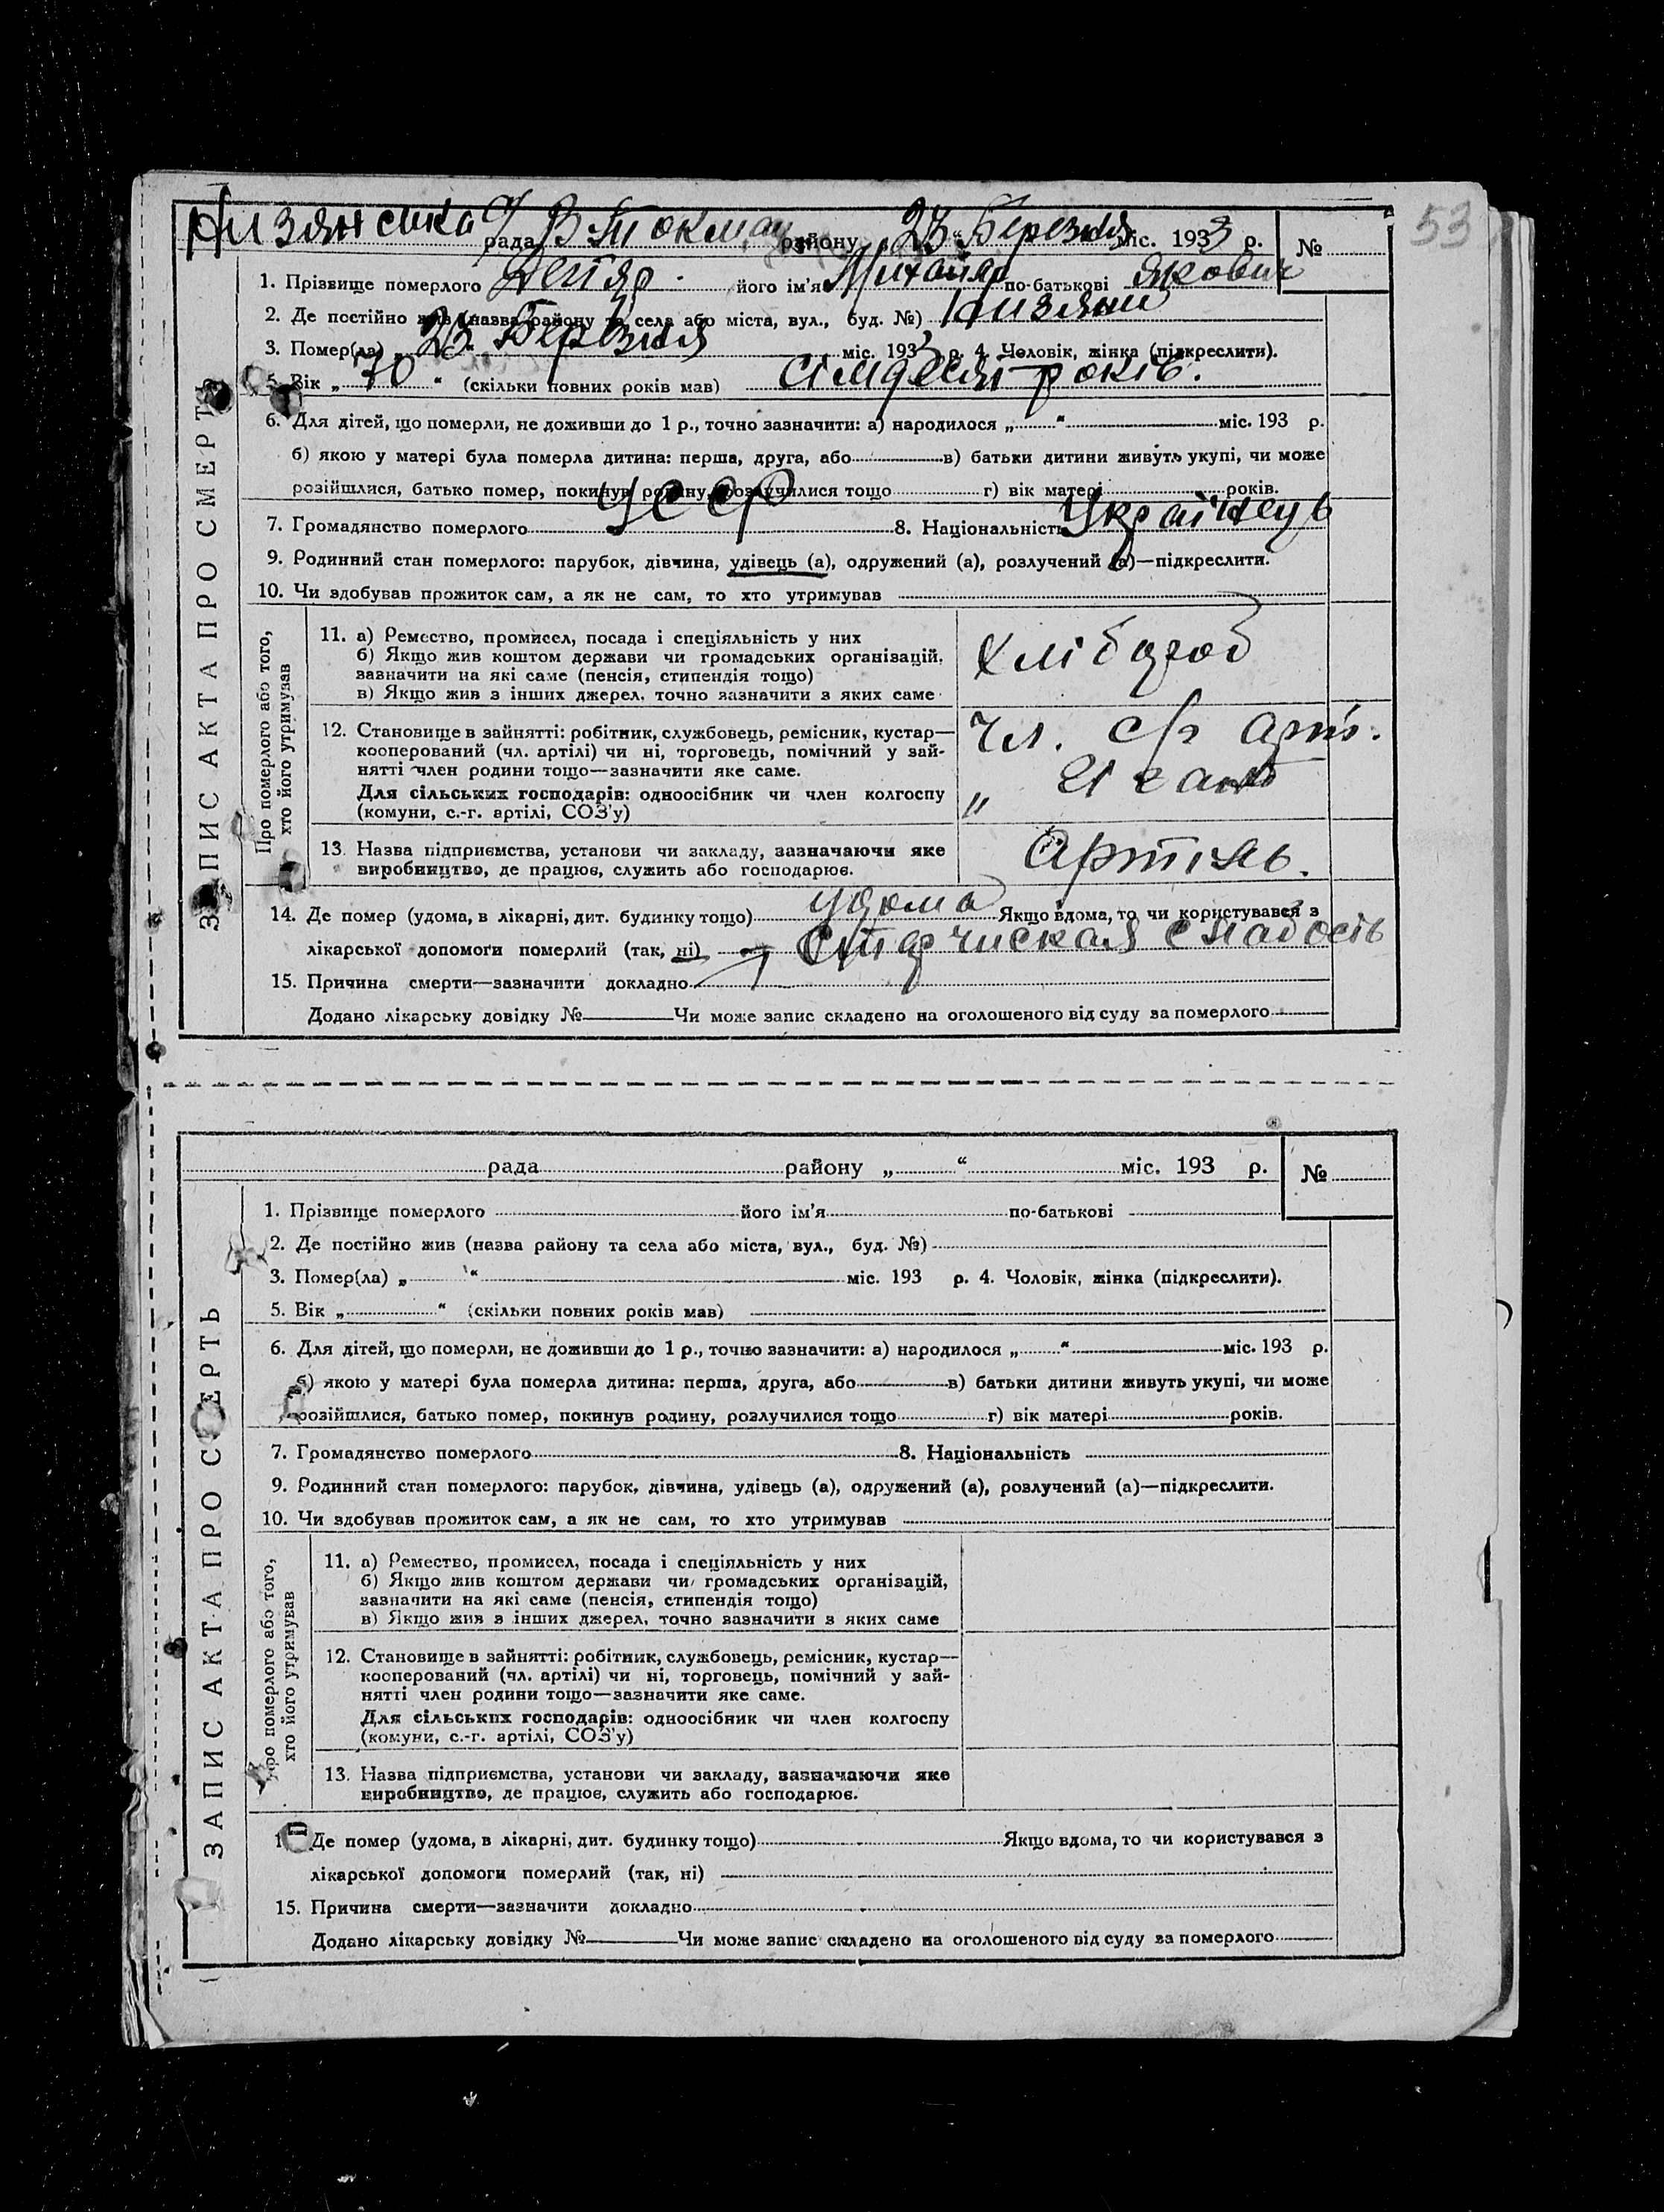 53
Низянська с/рада В Токмац району „ 23 “ Березня міс. 1933 р. №
ЗАПИС АКТА ПРО СМЕРТЬ
1. Прізвище померлого Дегтяр його ім'я Михайло по-батькові Якович
2. Де постійно жив (назва району та села або міста, вул., буд. №) Низяни
3. Помер(ла) „ 23 “ Березня міс. 1933 р. 4. Чоловік, жінка (підкреслити).
5. Вік „ 70 “ (скільки повних років мав) сімдесят років.
6. Для дітей, що померли, не доживши до 1 р., точно зазначити: а) народилося „ “ міс. 193 р.
б) якою у матері була померла дитина: перша, друга, або в) батьки дитини живуть укупі, чи може
розійшлися, батько помер, покинув родину, розлучилися тощо г) вік матері років.
7. Громадянство померлого УССР 8. Національність Українець
9. Родинний стан померлого: парубок, дівчина, удівець (а), одружений (а), розлучений (а)—підкреслити.
10. Чи здобував прожиток сам, а як не сам, то хто утримував
Про померлого або того,
хто його утримував
11. а) Ремество, промисел, посада і спеціяльність у них
б) Якщо жив коштом держави чи громадських організацій,
зазначити на які саме (пенсія, стипендія тощо)
в) Якщо жив з інших джерел, точно зазначити з яких саме
Хлібороб
12. Становище в зайнятті: робітник, службовець, ремісник, кустар—
кооперований (чл. артілі) чи ні, торговець, помічний у зай-
нятті член родини тощо—зазначити яке саме.
Для сільських господарів: одноосібник чи член колгоспу
(комуни, с.-г. артілі, СОЗ'у)
Чл. с/г арт.
„ Гігант
13. Назва підприємства, установи чи закладу, зазначаючи яке
виробництво, де працює, служить або господарює.
Артіль.
14. Де помер (удома, в лікарні, дит. будинку тощо) удома Якщо вдома, то чи користувався з
лікарської допомоги померлий (так, ні) Старчиская слабость
15. Причина смерти—зазначити докладно
Додано лікарську довідку № Чи може запис складено на оголошеного від суду за померлого
рада району „ “ міс. 193 р. №
ЗАПИС АКТА ПРО СМЕРТЬ
1. Прізвище померлого його ім'я по-батькові
2. Де постійно жив (назва району та села або міста, вул., буд. №)
3. Помер(ла) „ “ міс. 193 р. 4. Чоловік, жінка (підкреслити).
5. Вік „ “ (скільки повних років мав)
6. Для дітей, що померли, не доживши до 1 р., точно зазначити: а) народилося „ “ міс. 193 р.
б) якою у матері була померла дитина: перша, друга, або в) батьки дитини живуть укупі, чи може
розійшлися, батько помер, покинув родину, розлучилися тощо г) вік матері років.
7. Громадянство померлого 8. Національність
9. Родинний стан померлого: парубок, дівчина, удівець (а), одружений (а), розлучений (а)—підкреслити.
10. Чи здобував прожиток сам, а як не сам, то хто утримував
Про померлого або того,
хто його утримував
11. а) Ремество, промисел, посада і спеціяльність у них
б) Якщо жив коштом держави чи громадських організацій,
зазначити на які саме (пенсія, стипендія тощо)
в) Якщо жив з інших джерел, точно зазначити з яких саме
12. Становище в зайнятті: робітник, службовець, ремісник, кустар—
кооперований (чл. артілі) чи ні, торговець, помічний у зай-
нятті член родини тощо—зазначити яке саме.
Для сільських господарів: одноосібник чи член колгоспу
(комуни, с.-г. артілі, СОЗ'у)
13. Назва підприємства, установи чи закладу, зазначаючи яке
виробництво, де працює, служить або господарює.
Де помер (удома, в лікарні, дит. будинку тощо) Якщо вдома, то чи користувався з
лікарської допомоги померлий (так, ні)
15. Причина смерти—зазначити докладно
Додано лікарську довідку № Чи може запис складено на оголошеного від суду за померлого